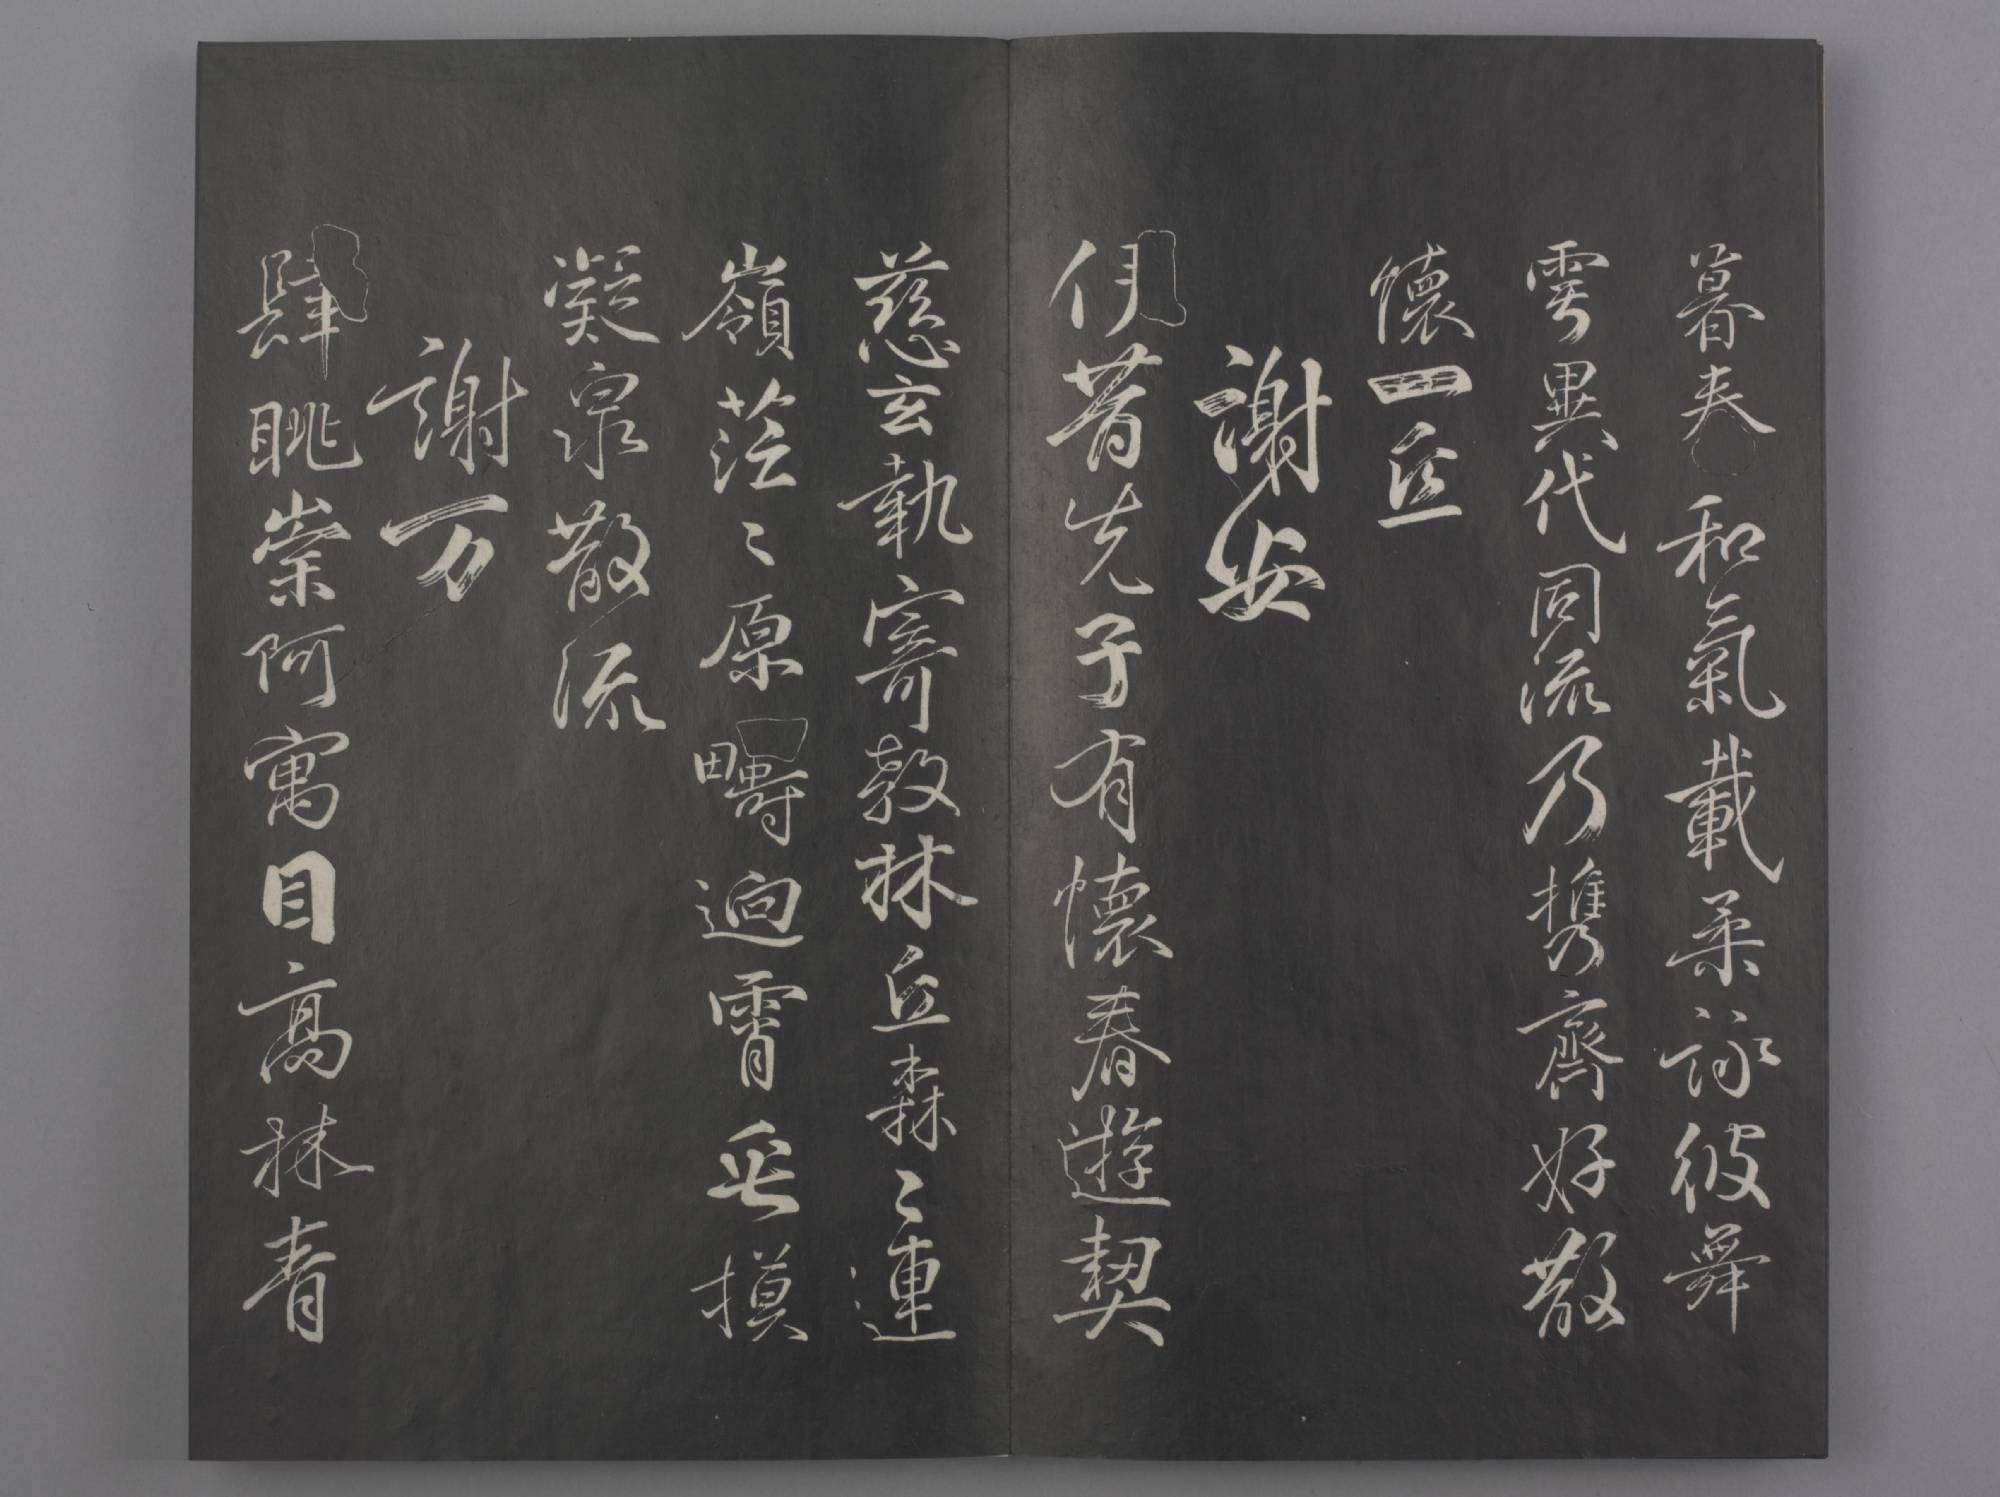 暮春和氣載柔詠彼舞
雩異代同流乃携齊好散
懷一丘
謝安
伊昔先子有懷春遊契
慈玄執寄敖林丘森〻連
嶺茫〻原疇逈霄垂摸
凝泉散流
謝万
肆眺崇阿寓目高林青